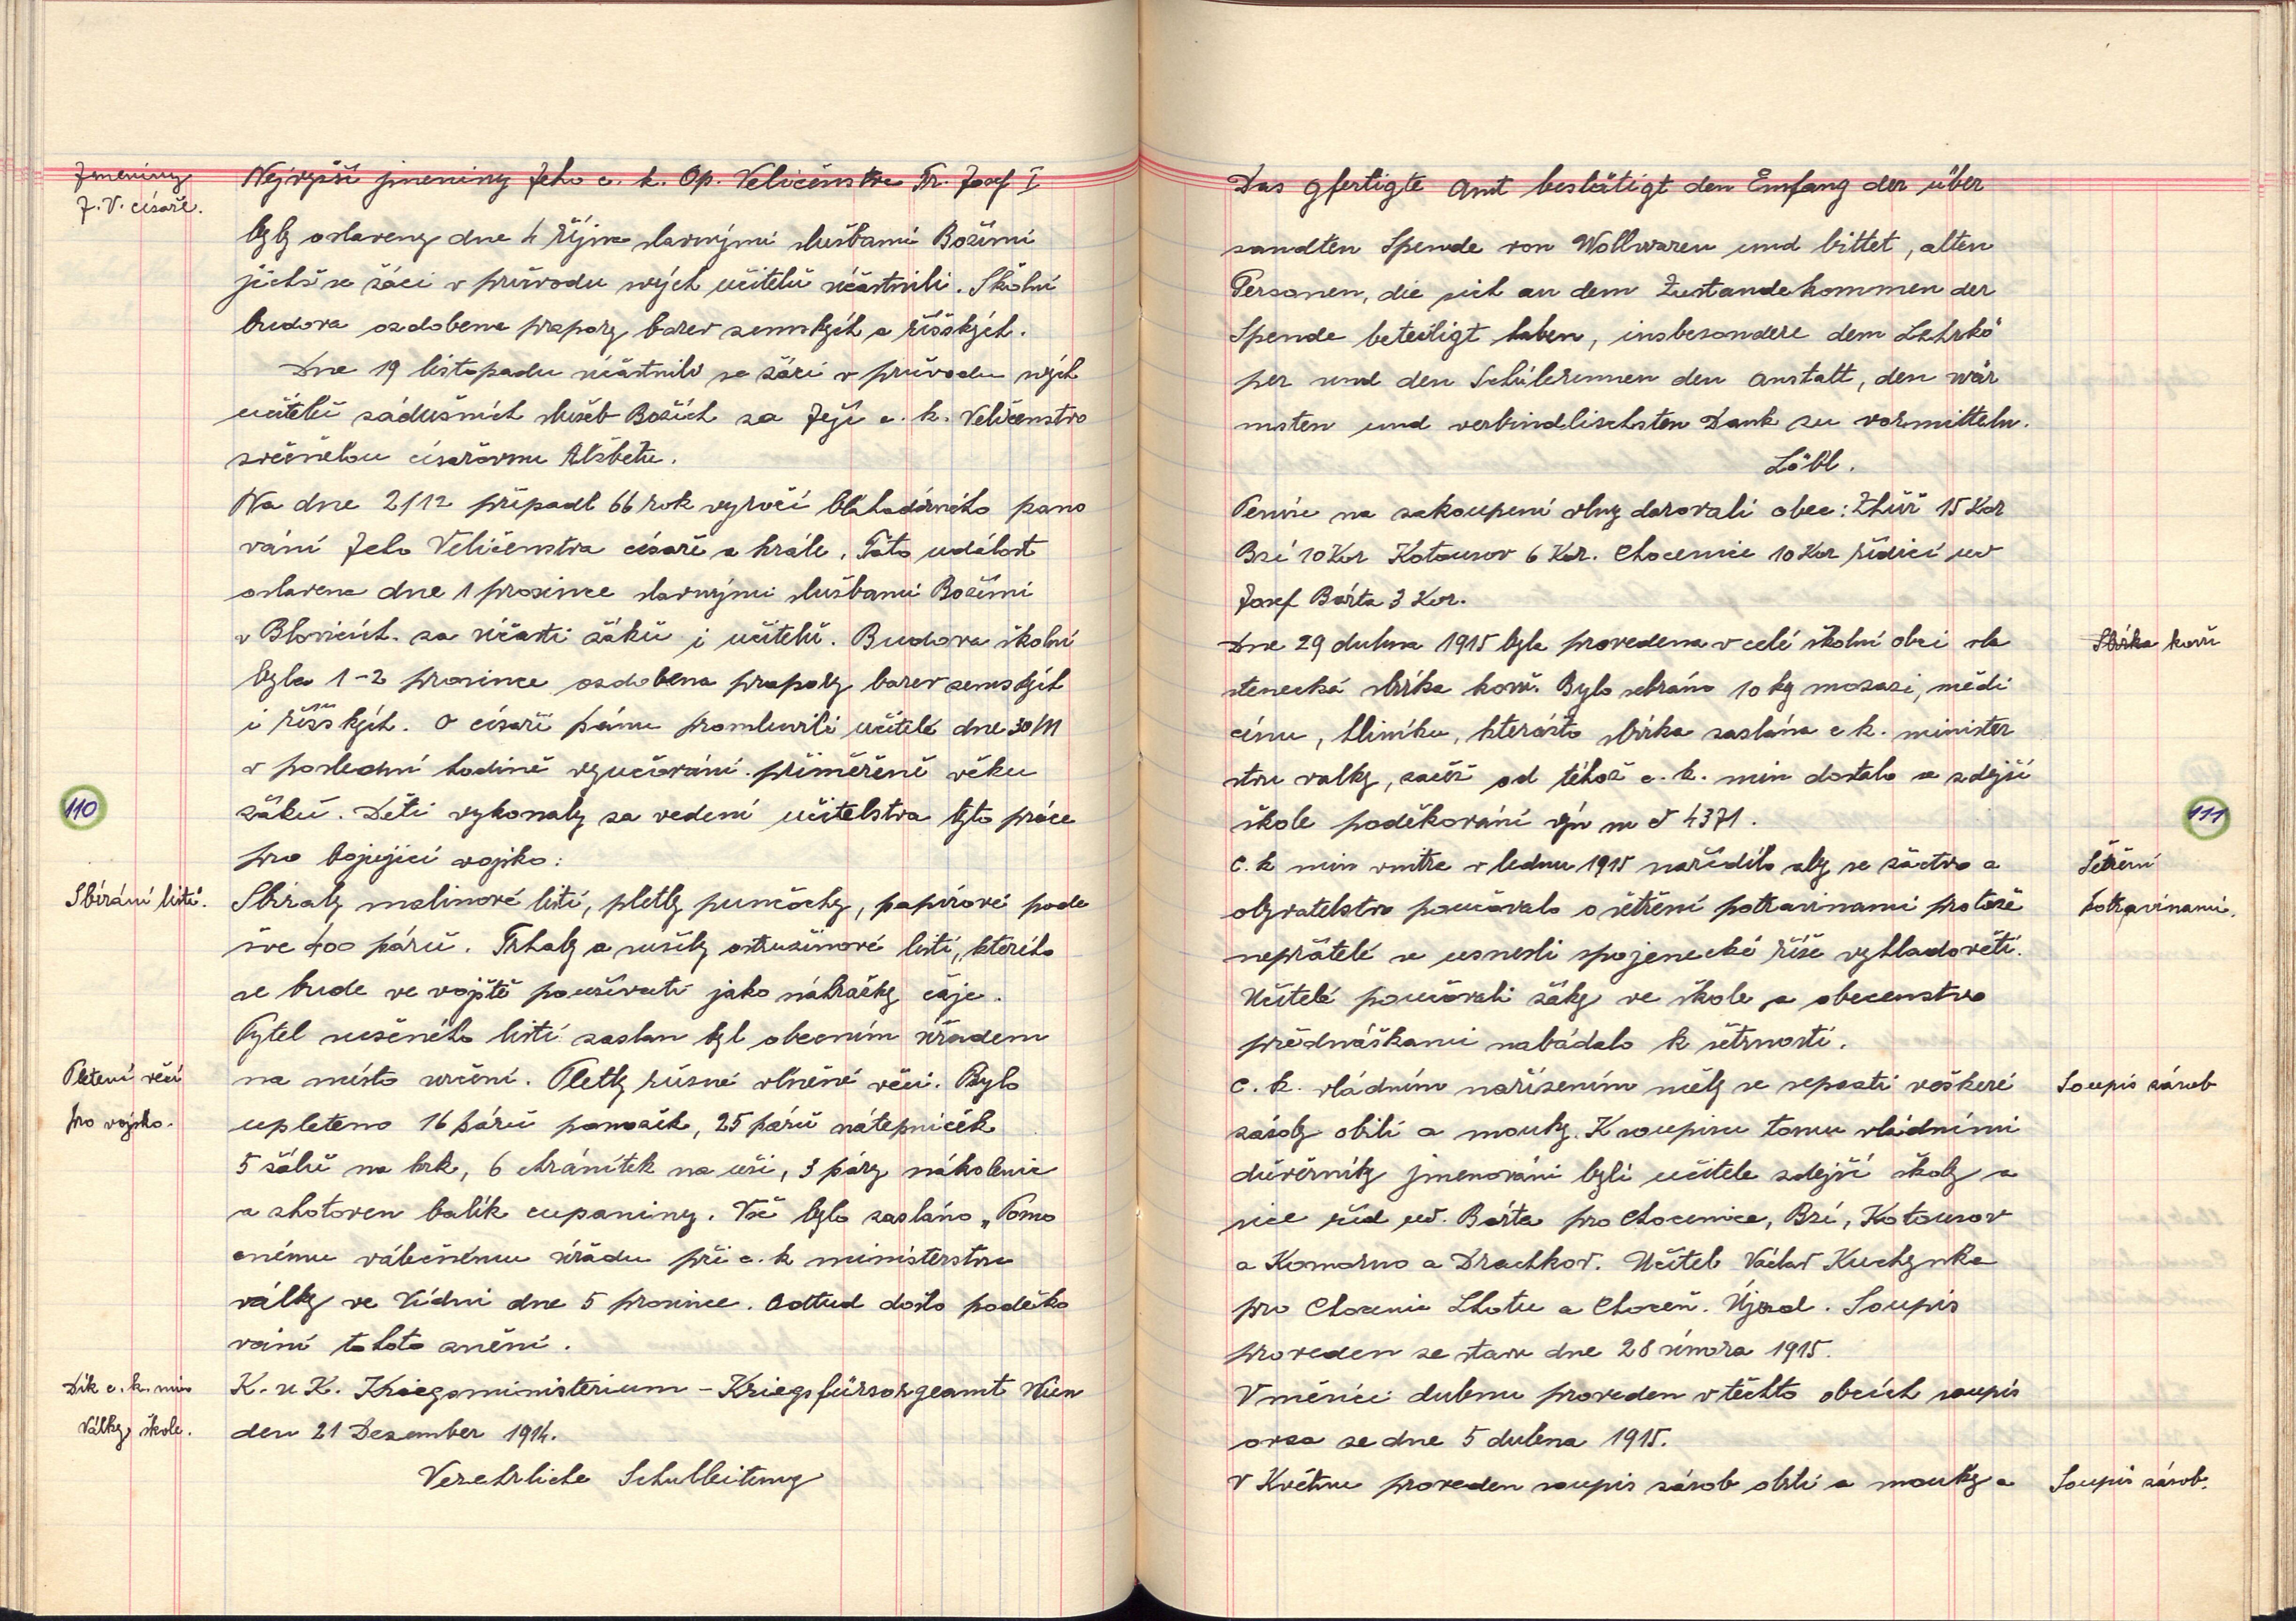 Jmeniny
J. V. císaře.
Nejvyšší jmeniny Jeho c. k. Ap. Veličenstva Fr. Josef I
byly oslaveny dne 4 října slavnými službami Božími
jichž se žáci v průvodu svých učitelů účastnili. Školní
budova ozdobena prapory barev zemských a říšských.
Dne 19 listopadu účastnili se žáci v průvodu svých
učitelů zádušních služeb Božích za Její c. k. Veličenstvo
zvěčnělou císařovnu Alžbětu.
Na dne 2/12 připadl 66 rok vyročí blahodárného pano
vání Jeho Veličenstva císaře a krále. Tato událost
oslavena dne 1 prosince slavnými službami Božími
v Blovicích za účasti žáků i učitelů. Budova školní
byla 1-2 prosince ozdobena prapory barev zemských
i říšských. O císaři pánu promluvili učitelé dne 30/11
v poslední hodině vyučování přiměřeně věku
110
žáků. Děti vykonaly za vedení učitelstva tyto práce
pro bojující vojsko:
Sbírání listí.
Sbíraly malinové listí, pletly punčochy, papírové pode
šve 400 párů. Trhaly a sušily ostružinové listí, kterého
se bude ve vojště používati jako náhražky čaje.
Pytel sušeného listí zaslan byl obecním úřadem
Pletení věcí
pro vojsko.
na místo určení. Pletly různé vlněné věci. Bylo
upleteno 16 párů ponožek, 25 párů nátepniček
5 šálů na krk, 6 chránítek na uši, 3 páry nákolenic
a zhotoven balík cupaniny. Vše bylo zasláno „Pomo
cnému válečnému úřadu při c. k ministerstvu
války ve Vídni dne 5 prosince. Odtud došlo poděko
vání tohoto znění.
Dík c. k. min
války škole.
K. u K. Kriegsministerium - Kriegsfürsorgeamt Wien
den 21 Dezember 1914.
Verehrliche Schulleitung
Das gfertigte Amt bestätigt den Emfang der über
sandten Spende von Wollwaren und bittet, alten
Personen, die sich an dem Zustandekommen der
Spende beteiligt haben, insbesondere dem Lehrkö
per und den Schülerinnen den Anstalt, den wär
msten und verbindlischsten Dank zu vormitteln.
Löbl.
Peníze na zakoupení vlny darovali obec: Zhůř 15 Kor
Bzí 10 Kor Kotousov 6 Kor. Chocenice 10 Kor řídící uč
Josef Bárta 3 Kor.
Dne 29 dubna 1915 byla provedena v celé školní obci vla
Sbírka kovů
stenecká sbírka kovů. Bylo sebráno 10 kg mosazi, mědi
cínu, hliníku, kterážto sbírka zaslána c k. minister
stvu valky, začež od téhož c. k. min dostalo se zdejší
škole poděkování č 4371.
111
C. k min vnitra v lednu 1915 nařídilo aby se žáctvo a
Šetření
potravinami.
obyvatelstvo poučovalo o šetření potravinami protože
nepřátelé se usnesli spojenecké říše vyhladověti.
Učitelé poučovali žáky ve škole a obecenstvo
přednáškami nabádalo k šetrnosti.
C. k. vládním nařízením měly se sepsati veškeré
Soupis zásob
zásoby obilí a mouky. K soupisu tomu vládními
důvěrníky jmenováni byli učitele zdejší školy a
sice říd uč. Bárta pro Chocenice, Bzí, Kotousov
a Komorno a Drachkov. Učitel Václav Kuchynka
pro Chocenic Lhotu a Choceň. Újezd. Soupis
proveden se stavu dne 28 února 1915.
V měsíci dubnu proveden v těchto obcích soupis
ovsa ze dne 5 dubna 1915.
V Květnu proveden soupis zásob obilí a mouky a
Soupis zásob.